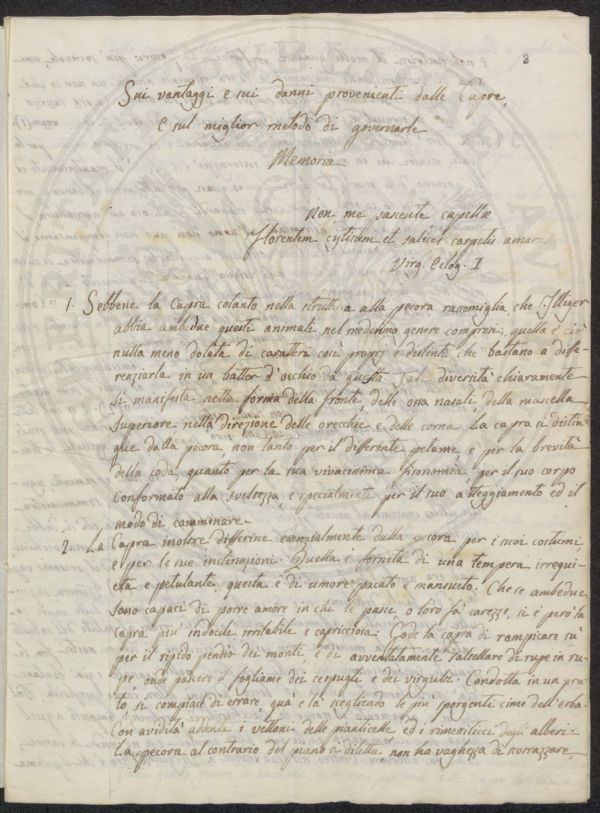 8
Sui vantaggi e sui danni provenienti dalle Capre,
E sul miglior metodo di governarle
Memoria
Non me pascente capellæ
florentem cytisum et salices carpetis amaras
Virg. Eclog. I
1. Sebbene la Capra cotanto nella struttura alla pecora rassomiglia che Illiger
abbia ambidue questi animali nel medesimo genere compresi, quella è ciò
nulla meno dotata di caratteri così proprj e distinti che bastano a diffe-
renziarla in un batter d'occhio da questa. Tale diversità chiaramente
si manifesta nella forma della fronte, delle ossa nasali, della mascella
superiore nella direzione delle orecchie e delle corna. La capra si distin-
gue dalla pecora non tanto per il differente pelame e per la brevità
della coda, quanto per la sua vivacissima fisonomia per il suo corpo
conformato alla sveltezza, e specialmente per il suo atteggiamento ed il
modo di camminare.
2. La Capra inoltre differisce essenzialmente dalla pecora per i suoi costumi,
e per le sue inclinazioni. Quella è fornita di una tempera irrequi-
eta e petulante, questa è di umore pacato e mansueto. Che se ambedue
sono capaci di porre amore in chi le pasce, o loro fa carezze, si è però la
capra più indocile irritabile e capricciosa. Gode la capra di rampicare su
per il ripido pendio dei monti e di avventatamente saltellare di rupe in ru-
pe onde pascere il fogliame dei cespugli e dei virgulti. Condotta in un pra-
to, si compiace di errare quà e là scegliendo le più sporgenti cime dell'erba.
Con avidità addenta i vettoni delle pianticelle ed i rimettiticci degli alberi.
La pecora al contrario del piano si diletta, non ha vaghezza di scorrazzare,